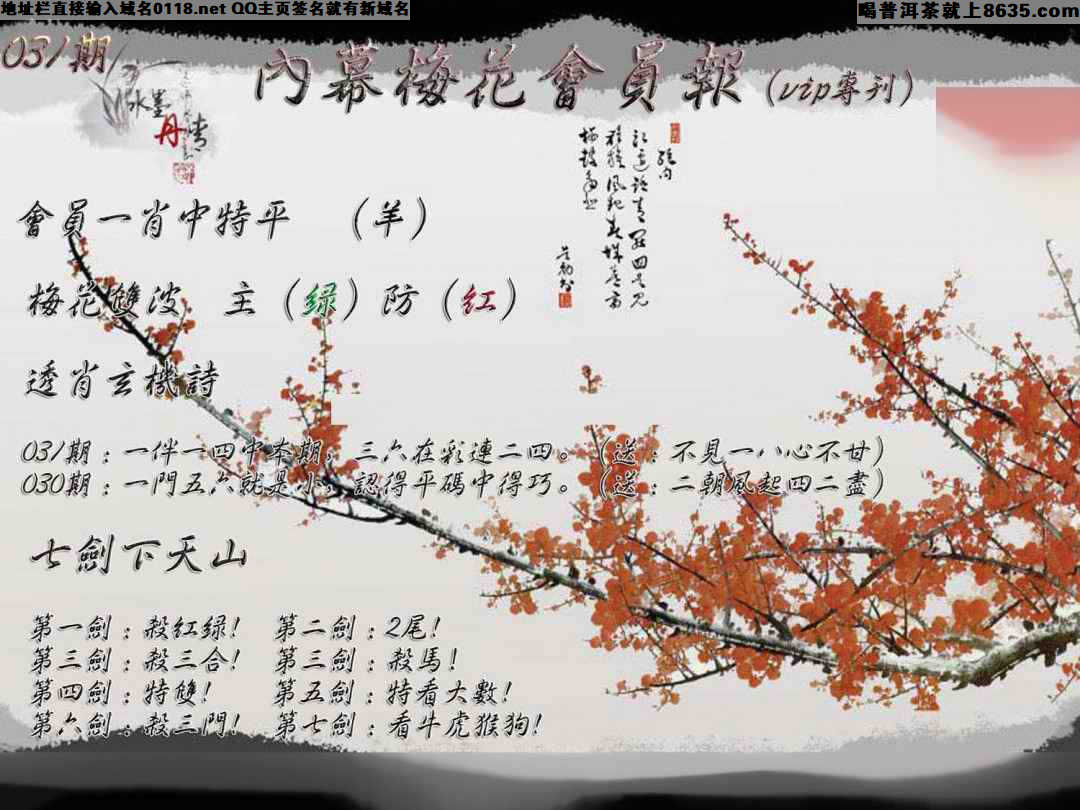 地址栏直接输入域名0118.net QQ主页签名就有新域名
喝普洱茶就上8635.com
031期
內幕梅花會員報（vip專刊）
水墨
丹青
會員一肖中特平 （羊）
梅花雙波 主（绿）防（红）
透肖玄機詩
031期：一伴一四中本期，三六在彩連二四。（送：不見一八心不甘）
030期：一門五六就是小，認得平碼中得巧。（送：二朝風起四二盡）
七劍下天山
第一劍：殺紅绿！ 第二劍：2尾！
第三劍：殺三合！ 第三劍：殺馬！
第四劍：特雙！ 第五劍：特看大數！
第六劍：殺三門！ 第七劍：看牛虎猴狗！